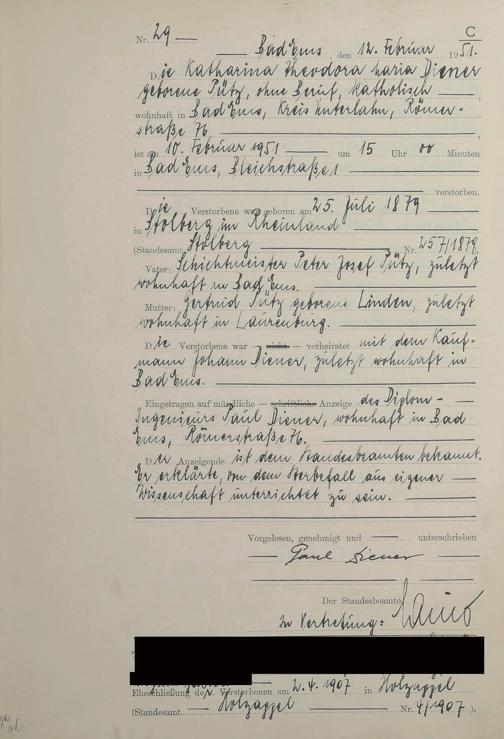 C
Nr. 29
Bad Ems den 12. Februar 1951.
Die Katharina Theodora Maria Diener
geborene Pütz, ohne Beruf, katholisch
wohnhaft in Bad Ems, Kreis Unterlahn, Römer-
straße 76
ist am 10. Februar 1951 um 15 Uhr 00 Minuten
in Bad Ems, Bleichstraße 1
verstorben.
Die Verstorbene war geboren am 25. Juli 1879
in Stolberg im Rheinland
(Standesamt Stolberg Nr. 257/1879)
Vater: Schichtmeister Peter Josef Pütz, zuletzt
wohnhaft in Bad Ems.
Mutter: Gertrud Pütz geborene Linden, zuletzt
wohnhaft in Laurenburg.
Die Verstorbene war — nicht — verheiratet mit dem Kauf-
mann Johann Diener, zuletzt wohnhaft in
Bad Ems.
Eingetragen auf mündliche — schriftliche Anzeige des Diplom-
Ingenieurs Paul Diener, wohnhaft in Bad
Ems, Römerstraße 76.
Der Anzeigende ist dem Standesbeamten bekannt.
Er erklärte, von dem Sterbefall aus eigener
Wissenschaft unterrichtet zu sein.
Vorgelesen, genehmigt und unterschrieben
Paul Diener
Der Standesbeamte
In Vertretung:
Eheschließung der Verstorbenen am 2.4.1907 in Holzappel
(Standesamt Holzappel Nr. 4/1907 ).